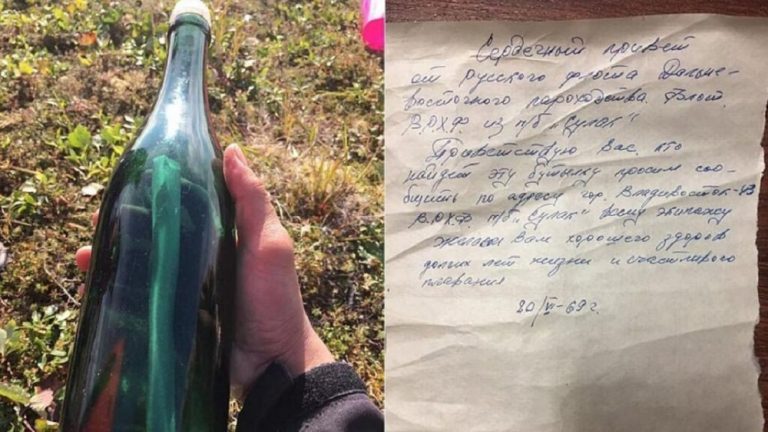 Сердечный привет
от русского флота Дальне-
восточного пароходства. Флот.
В.О.Х.Ф. из п/б "Сулак"
Приветствую Вас, кто
найдет эту бутылку просим соо-
бщить по адресу гор. Владивосток-43
В.О.Х.Ф. п/б "Сулак" всему экипажу
Желаем Вам хорошего здоров
долгих лет жизни и счастливого
плавания
20/VI-69 г.